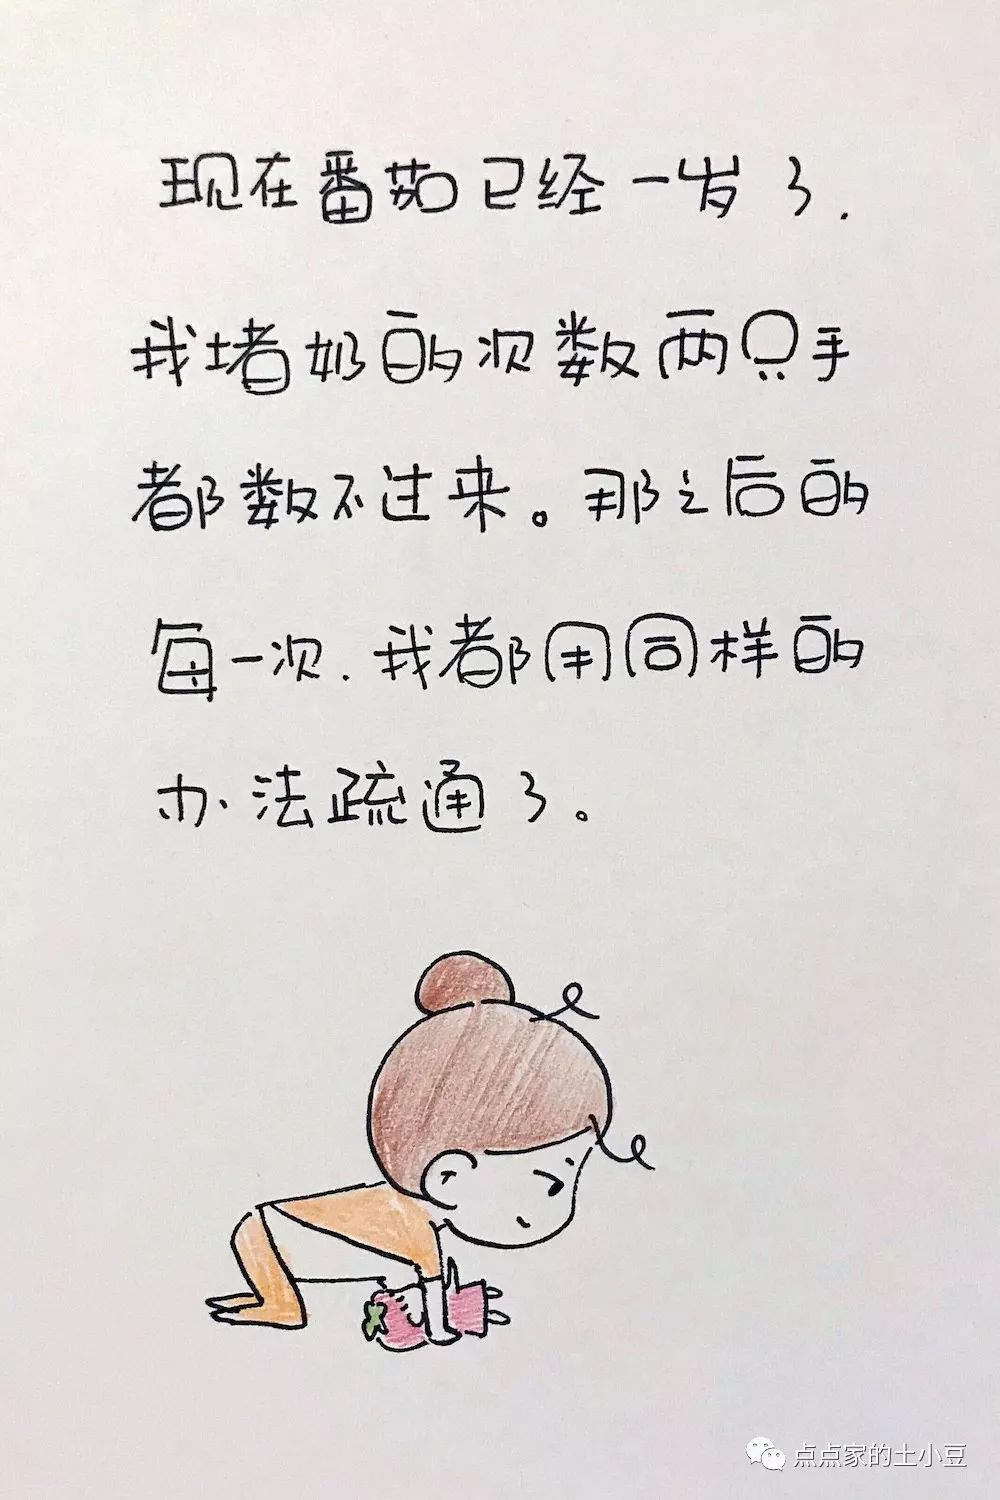 现在番茄已经一岁了.
我堵奶的次数两只手
都数不过来。那之后的
每一次.我都用同样的
办法疏通了。
点点家的土小豆